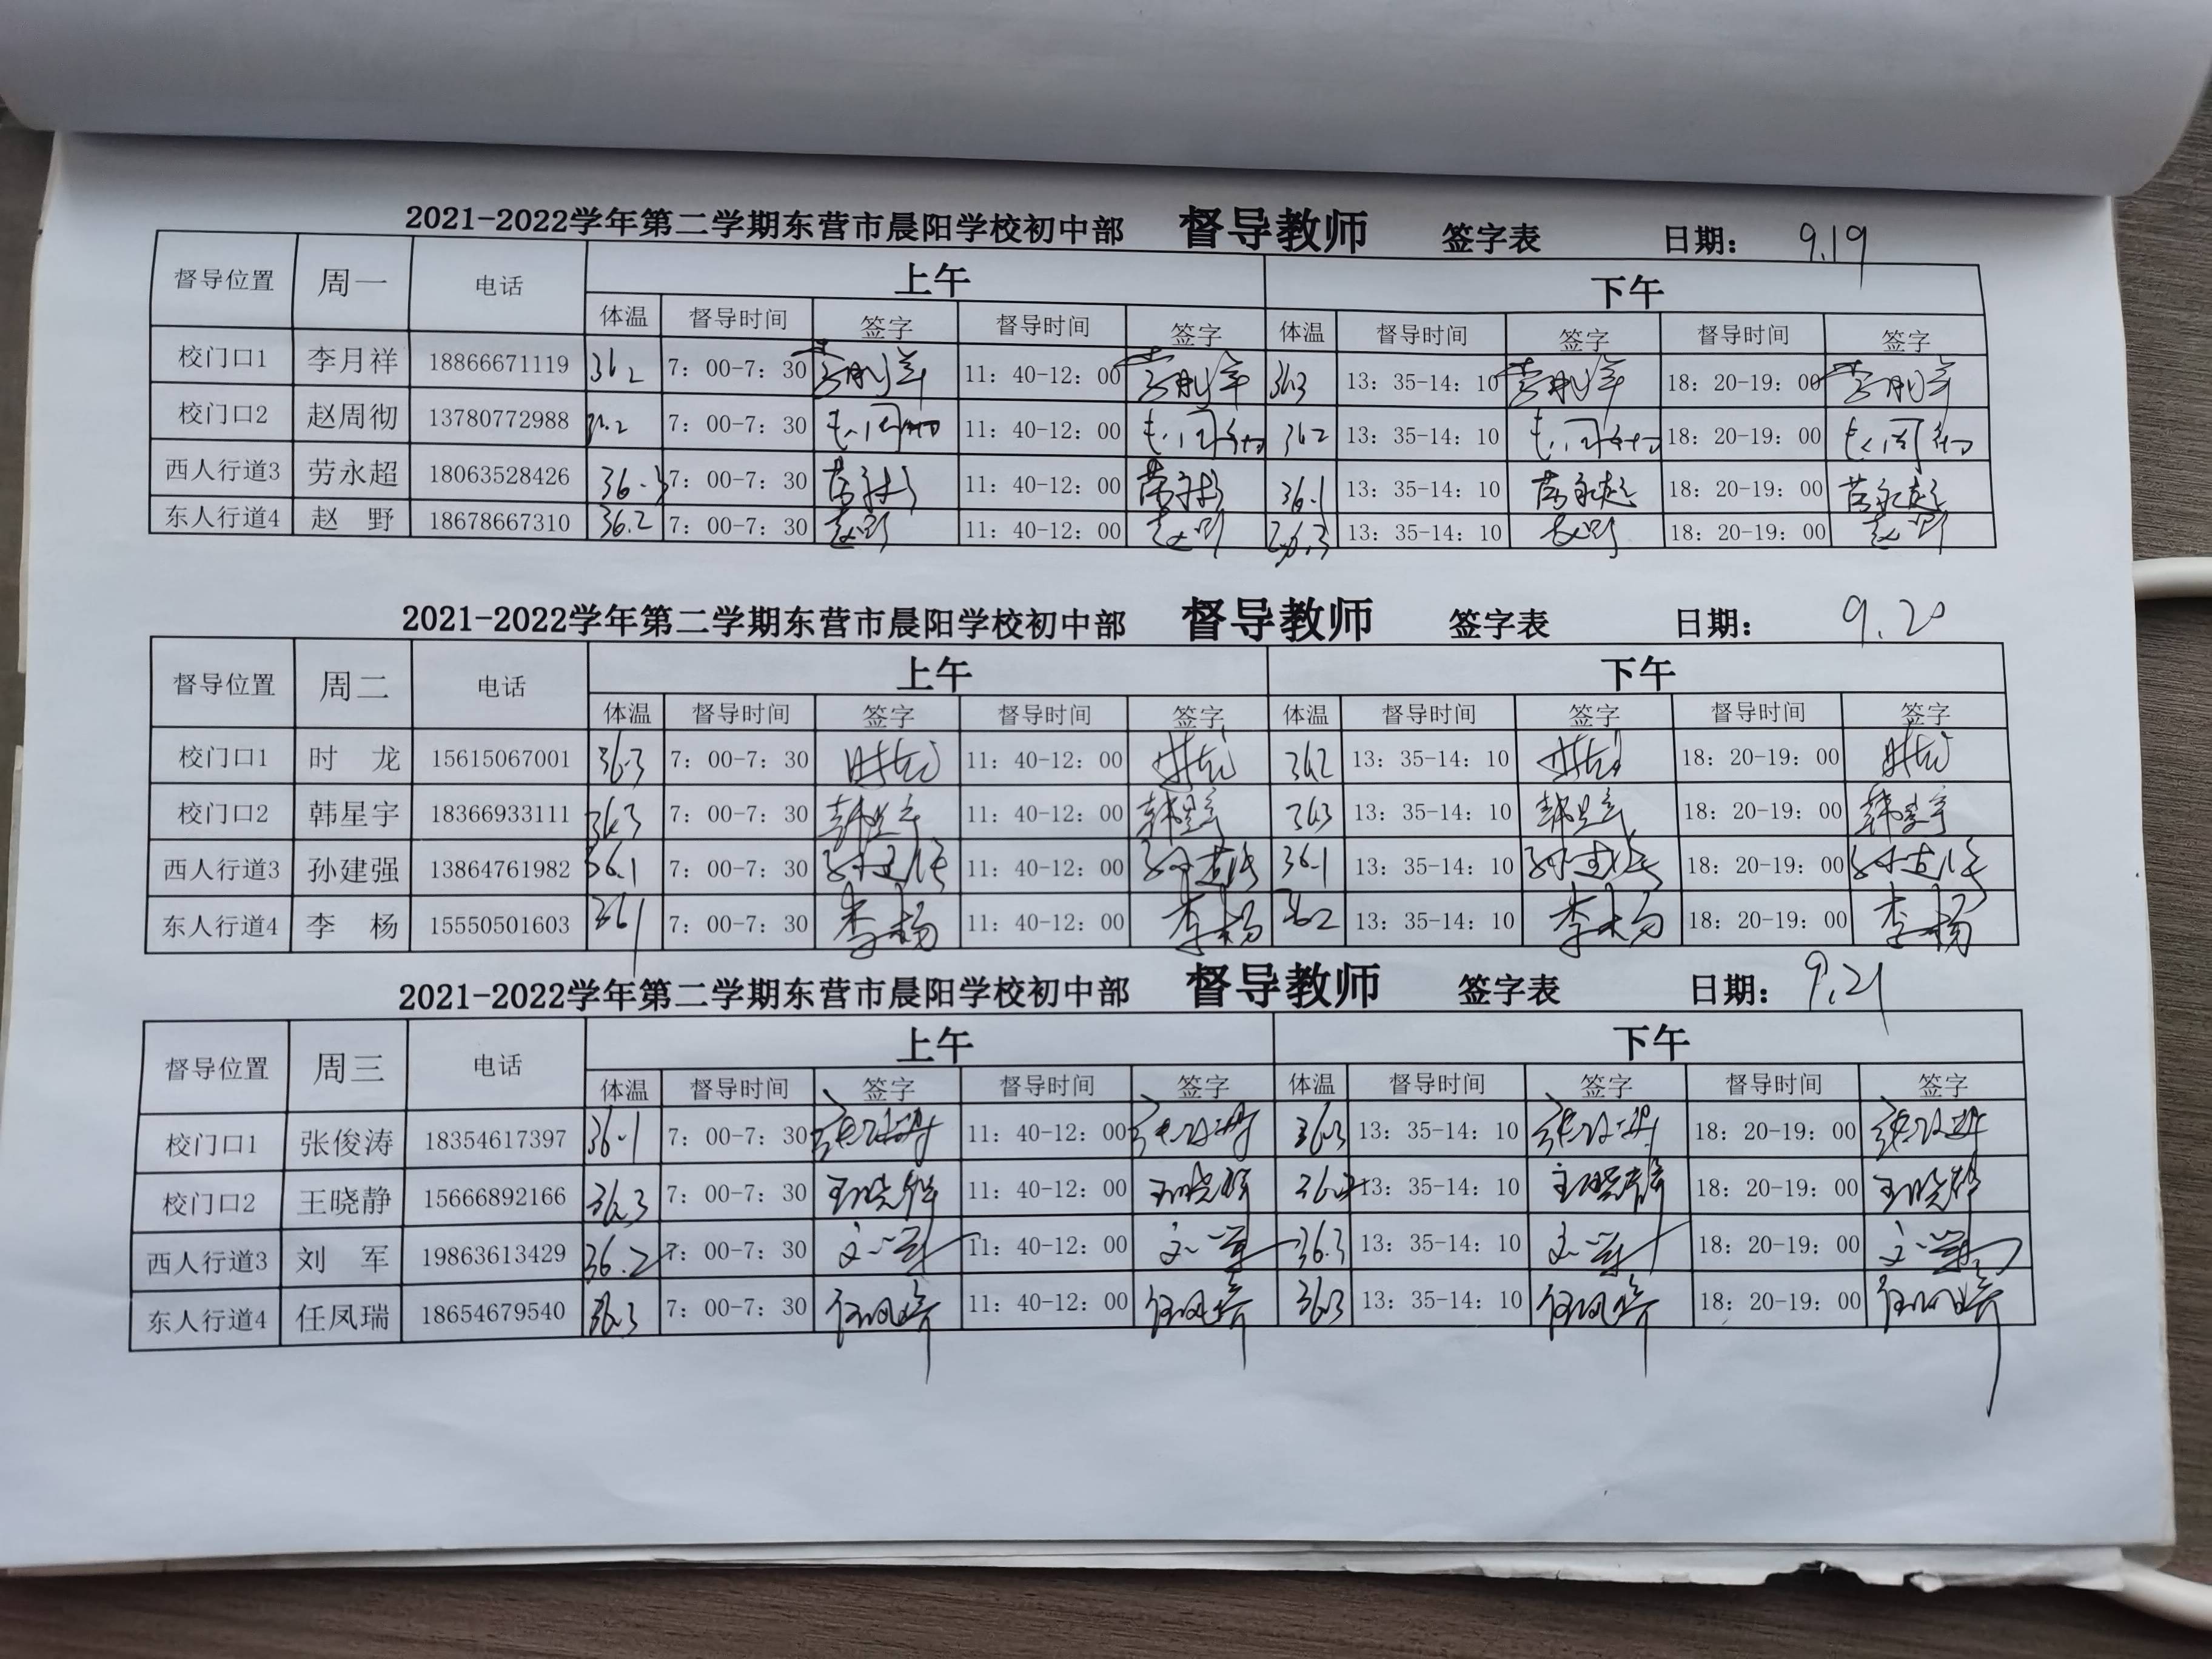 2021-2022学年第二学期东营市晨阳学校初中部 督导教师 签字表 日期： 9.19
督导位置 周一 电话 上午 下午
体温 督导时间 签字 督导时间 签字 体温 督导时间 签字 督导时间 签字
校门口1 李月祥 18866671119 36.2 7：00-7：30 李月祥 11：40-12：00 李月祥 36.3 13：35-14：10 李月祥 18：20-19：00 李月祥
校门口2 赵周彻 13780772988 36.2 7：00-7：30 赵周彻 11：40-12：00 赵周彻 36.2 13：35-14：10 赵周彻 18：20-19：00 赵周彻
西人行道3 劳永超 18063528426 7：00-7：30 劳永超 11：40-12：00 劳永超 36.1 13：35-14：10 劳永超 18：20-19：00 劳永超
东人行道4 赵 野 18678667310 36.2 7：00-7：30 赵野 11：40-12：00 赵野 36.3 13：35-14：10 赵野 18：20-19：00 赵野
2021-2022学年第二学期东营市晨阳学校初中部 督导教师 签字表 日期： 9.20
督导位置 周二 电话 上午 下午
体温 督导时间 签字 督导时间 签字 体温 督导时间 签字 督导时间 签字
校门口1 时 龙 15615067001 36.3 7：00-7：30 时龙 11：40-12：00 时龙 36.2 13：35-14：10 时龙 18：20-19：00 时龙
校门口2 韩星宇 18366933111 36.3 7：00-7：30 韩星宇 11：40-12：00 韩星宇 36.3 13：35-14：10 韩星宇 18：20-19：00 韩星宇
西人行道3 孙建强 13864761982 36.1 7：00-7：30 孙建强 11：40-12：00 孙建强 36.1 13：35-14：10 孙建强 18：20-19：00 孙建强
东人行道4 李 杨 15550501603 36.1 7：00-7：30 李杨 11：40-12：00 李杨 36.2 13：35-14：10 李杨 18：20-19：00 李杨
2021-2022学年第二学期东营市晨阳学校初中部 督导教师 签字表 日期： 9.21
督导位置 周三 电话 上午 下午
体温 督导时间 签字 督导时间 签字 体温 督导时间 签字 督导时间 签字
校门口1 张俊涛 18354617397 36.1 7：00-7：30 张俊涛 11：40-12：00 张俊涛 36.3 13：35-14：10 张俊涛 18：20-19：00 张俊涛
校门口2 王晓静 15666892166 36.3 7：00-7：30 王晓静 11：40-12：00 王晓静 13：35-14：10 王晓静 18：20-19：00 王晓静
西人行道3 刘 军 19863613429 36.2 7：00-7：30 刘军 11：40-12：00 刘军 36.3 13：35-14：10 刘军 18：20-19：00 刘军
东人行道4 任凤瑞 18654679540 36.3 7：00-7：30 任凤瑞 11：40-12：00 任凤瑞 36.3 13：35-14：10 任凤瑞 18：20-19：00 任凤瑞